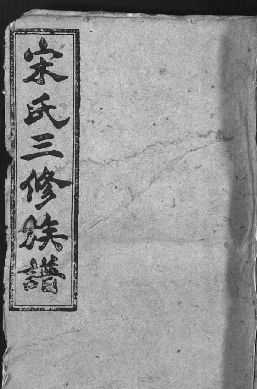 宋氏三修族譜